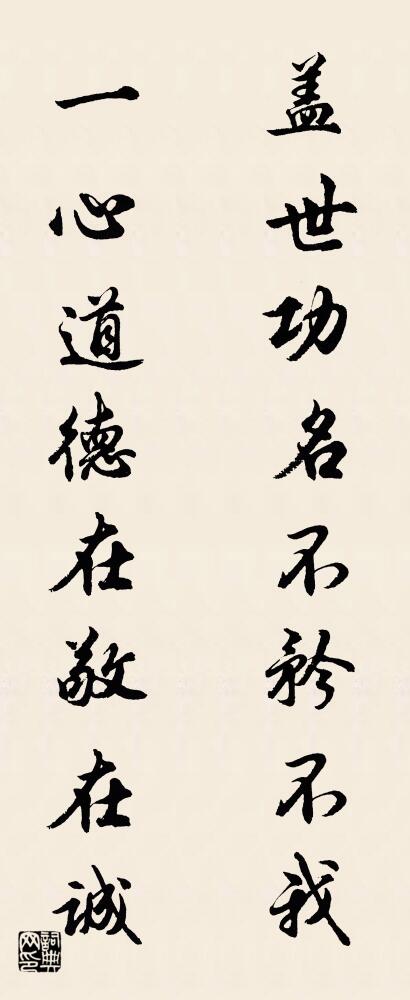 盖世功名不矜不我
一心道德在敬在诚
詞典网印